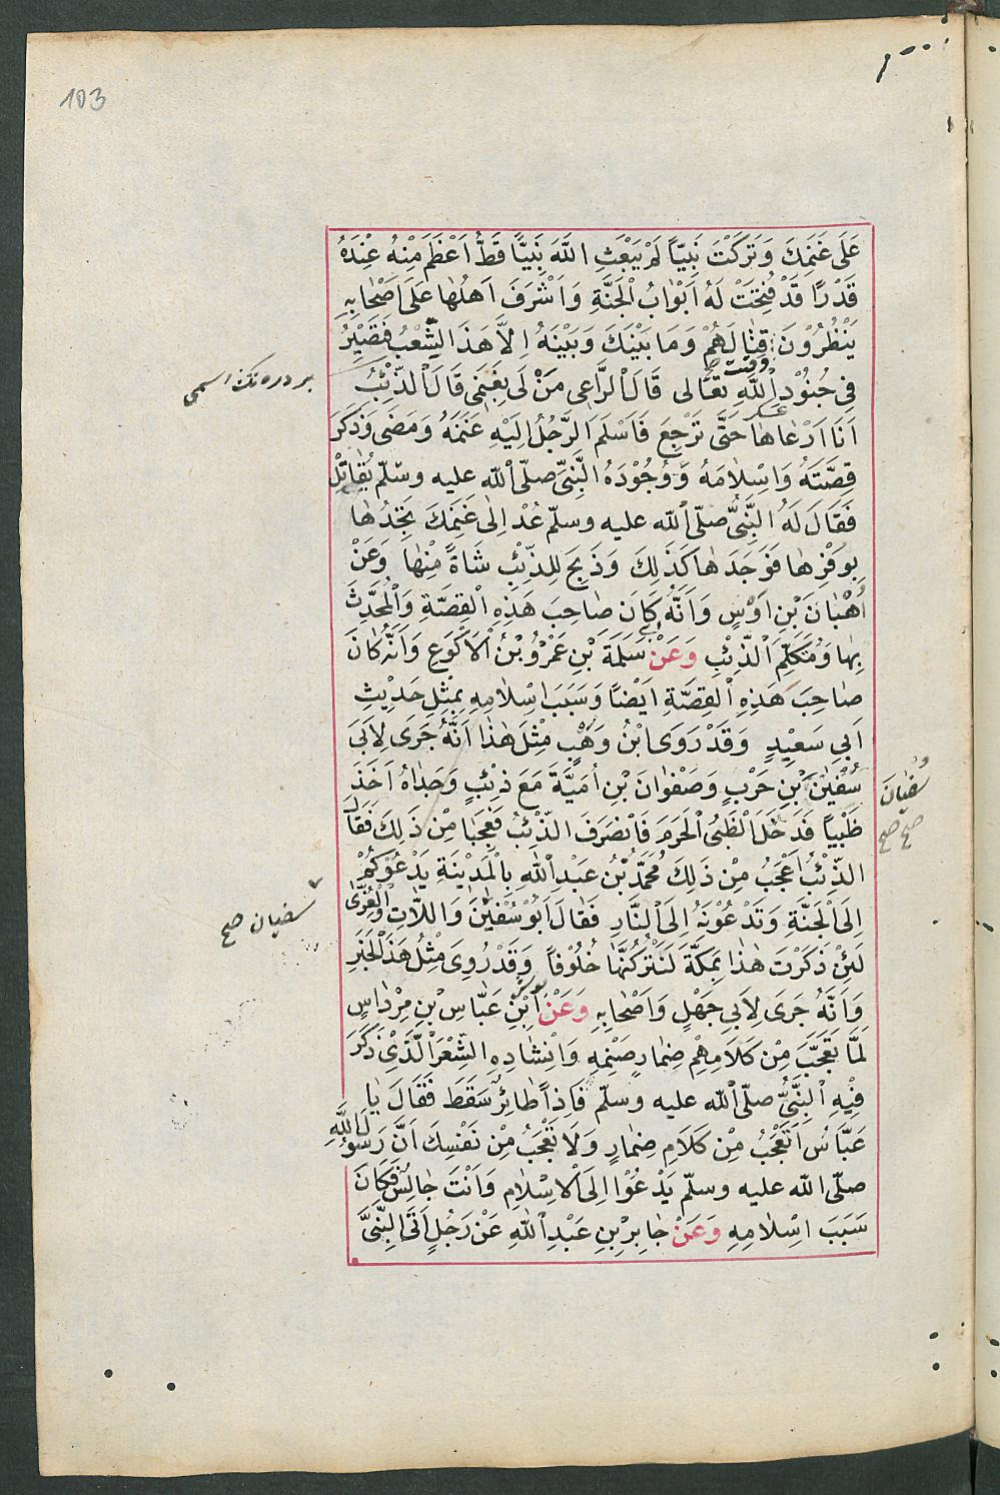 103
عَلَى غَنَمِكَ وَتَرَكْتَ نَبِيّاً لَمْ يَبْعَثِ اللّٰهَ نَبِيًّا قَطُّ اَعْظَمَ مِنْهُ عِنْدَهُ
قَدْرًا قَدْ فُتِحَتْ لَهُ اَبْوَابُ الْجَنَّةِ وَاَشْرَفَ اَهْلُهَا عَلَى اَصْحَابِهِ
يَنْظُرُوْنَ قِتٰالَهُمْ وَمَا بَيْنَكَ وَبَيْنَهُ اِلاَّ هَذَا الشِّعْبُ فَتَصِيْرُ
فِى جُنُوْدِ اللّٰهِ تَعَالى قَالَ الرَّاعِى مَنْ لَى بِغَنَمِى قَالَ الذِّئْبُ
اَنَا اَرْعَاهَا حَتَّى تَرْجِعَ فَاَسْلَمَ الرَّجُلُ اِلَيْهِ غَنَمَهُ وَمَضَى وَذَكَرَ
قِصَّتَهُ وَاِسْلاَمَهُ وَوُجُوْدَهُ النَّبِىَّ صلّى اللّه عليه وسلّم يُقَاتِلُ
فَقَالَ لَهُ النَّبِىُّ صلّى اللّه عليه وسلّم عُدْ اِلٰى غَنَمِكَ تَجِدُهٰا
بِوَفْرِهٰا فَوَجَدَهٰا كَذَلِكَ وَذَبَحَ لِلذِّئْبِ شَاةً مِنْهٰا وَعَنْ
اُهْبٰانَ بْنِ اَوْسٍ وَاَنَّهُ كَانَ صٰاحِبَ هَذِهِ الْقِصَّةِ وَالْمُحَدِّثَ
بِهٰا وَمُتَكَلِّمَ الذِّئْبِ وَعَنْ سَلَمَةَ بْنِ عَمْرِو بْنِ الْاَكْوَعِ وَاَنَّهُ كٰانَ
صٰاحِبَ هَذِهِ الْقِصَّةِ اَيْضًا وَسَبَبَ اِسْلاَمِهِ بِمِثْلِ حَدِيْثِ
اَبِى سَعِيْدٍ وَقَدْ رَوَى ابْنُ وَهْبٍ مِثْلَ هٰذَا اَنَّهُ جَرَى لِاَبِى
سُفْيٰنَ بْنِ حَرْبٍ وَصَفْوَانَ بْنِ اُمَيَّةَ مَعَ ذِئْبٍ وَجَدَاهُ اَخَذَ
ظَبْيًا فَدَخَلَ الظَّبْىُ الْحَرَمَ فَانْصَرَفَ الذِّئْبُ فَعَجِبَا مِنْ ذَلِكَ فَقَالَ
الذِّئْبُ اَعْجَبُ مِنْ ذَلِكَ مُحَمَّدُ بْنُ عَبْدِ اللّٰهِ بِالْمَدِيْنَةِ يَدْعُوْكُمْ
اِلَى الْجَنَّةِ وَتَدْعُوْنَهُ اِلَى النَّارِ فَقَالَ اَبُوْ سُفْيٰنَ وَاللاَّتِ وَالْعُزَّى
لَئِنْ ذَكَرْتَ هٰذَا بِمَكَّةَ لَتَتْرُكَنَّهَا خُلُوْفًا وَقَدْ رُوِىَ مِثْلُ هَذَا الْخَبَرِ
وَاَنَّهُ جَرَى لِاَبِى جَهْلٍ وَاَصْحَابِهِ وَعَنْ اِبْنِ عَبَّاسِ بْنِ مِرْدَاسٍ
لَمَّا تَعَجَّبَ مِنْ كَلاَمِهِمْ ضِمَارِ صَنَمِهِ وَاِنْشَادِهِ الشِّعْرَ الَّذِىْ ذَكَرَ
فِيْهِ النَّبِىُّ صلّى اللّه عليه وسلّم فَاِذَا طَائِرٌ سَقَطَ فَقَالَ يَا
عَبَّاسُ اَتَعْجَبُ مِنْ كَلاَمِ ضِمَارٍ وَلاَ تَعْجَبُ مِنْ نَفْسِكَ اَنَّ رَسُوْلَ اللّٰهِ
صلّى اللّه عليه وسلّم يَدْعُوْا اِلَى الْاِسْلاَمِ وَاَنْتَ جَالِسٌ فَكَانَ
سَبَبَ اِسْلاَمِهِ وَعَنْ جَابِرِ بْنِ عَبْدِ اللّٰهِ عَنْ رَجُلٍ اَتَى النَّبِىَّ
سُفْيَانَ
صح صح
سفيان صح